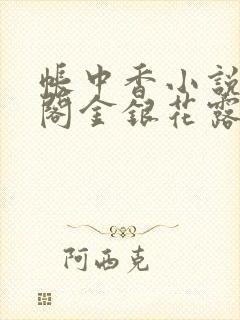 帳中香小說
閣金銀花露
阿西克